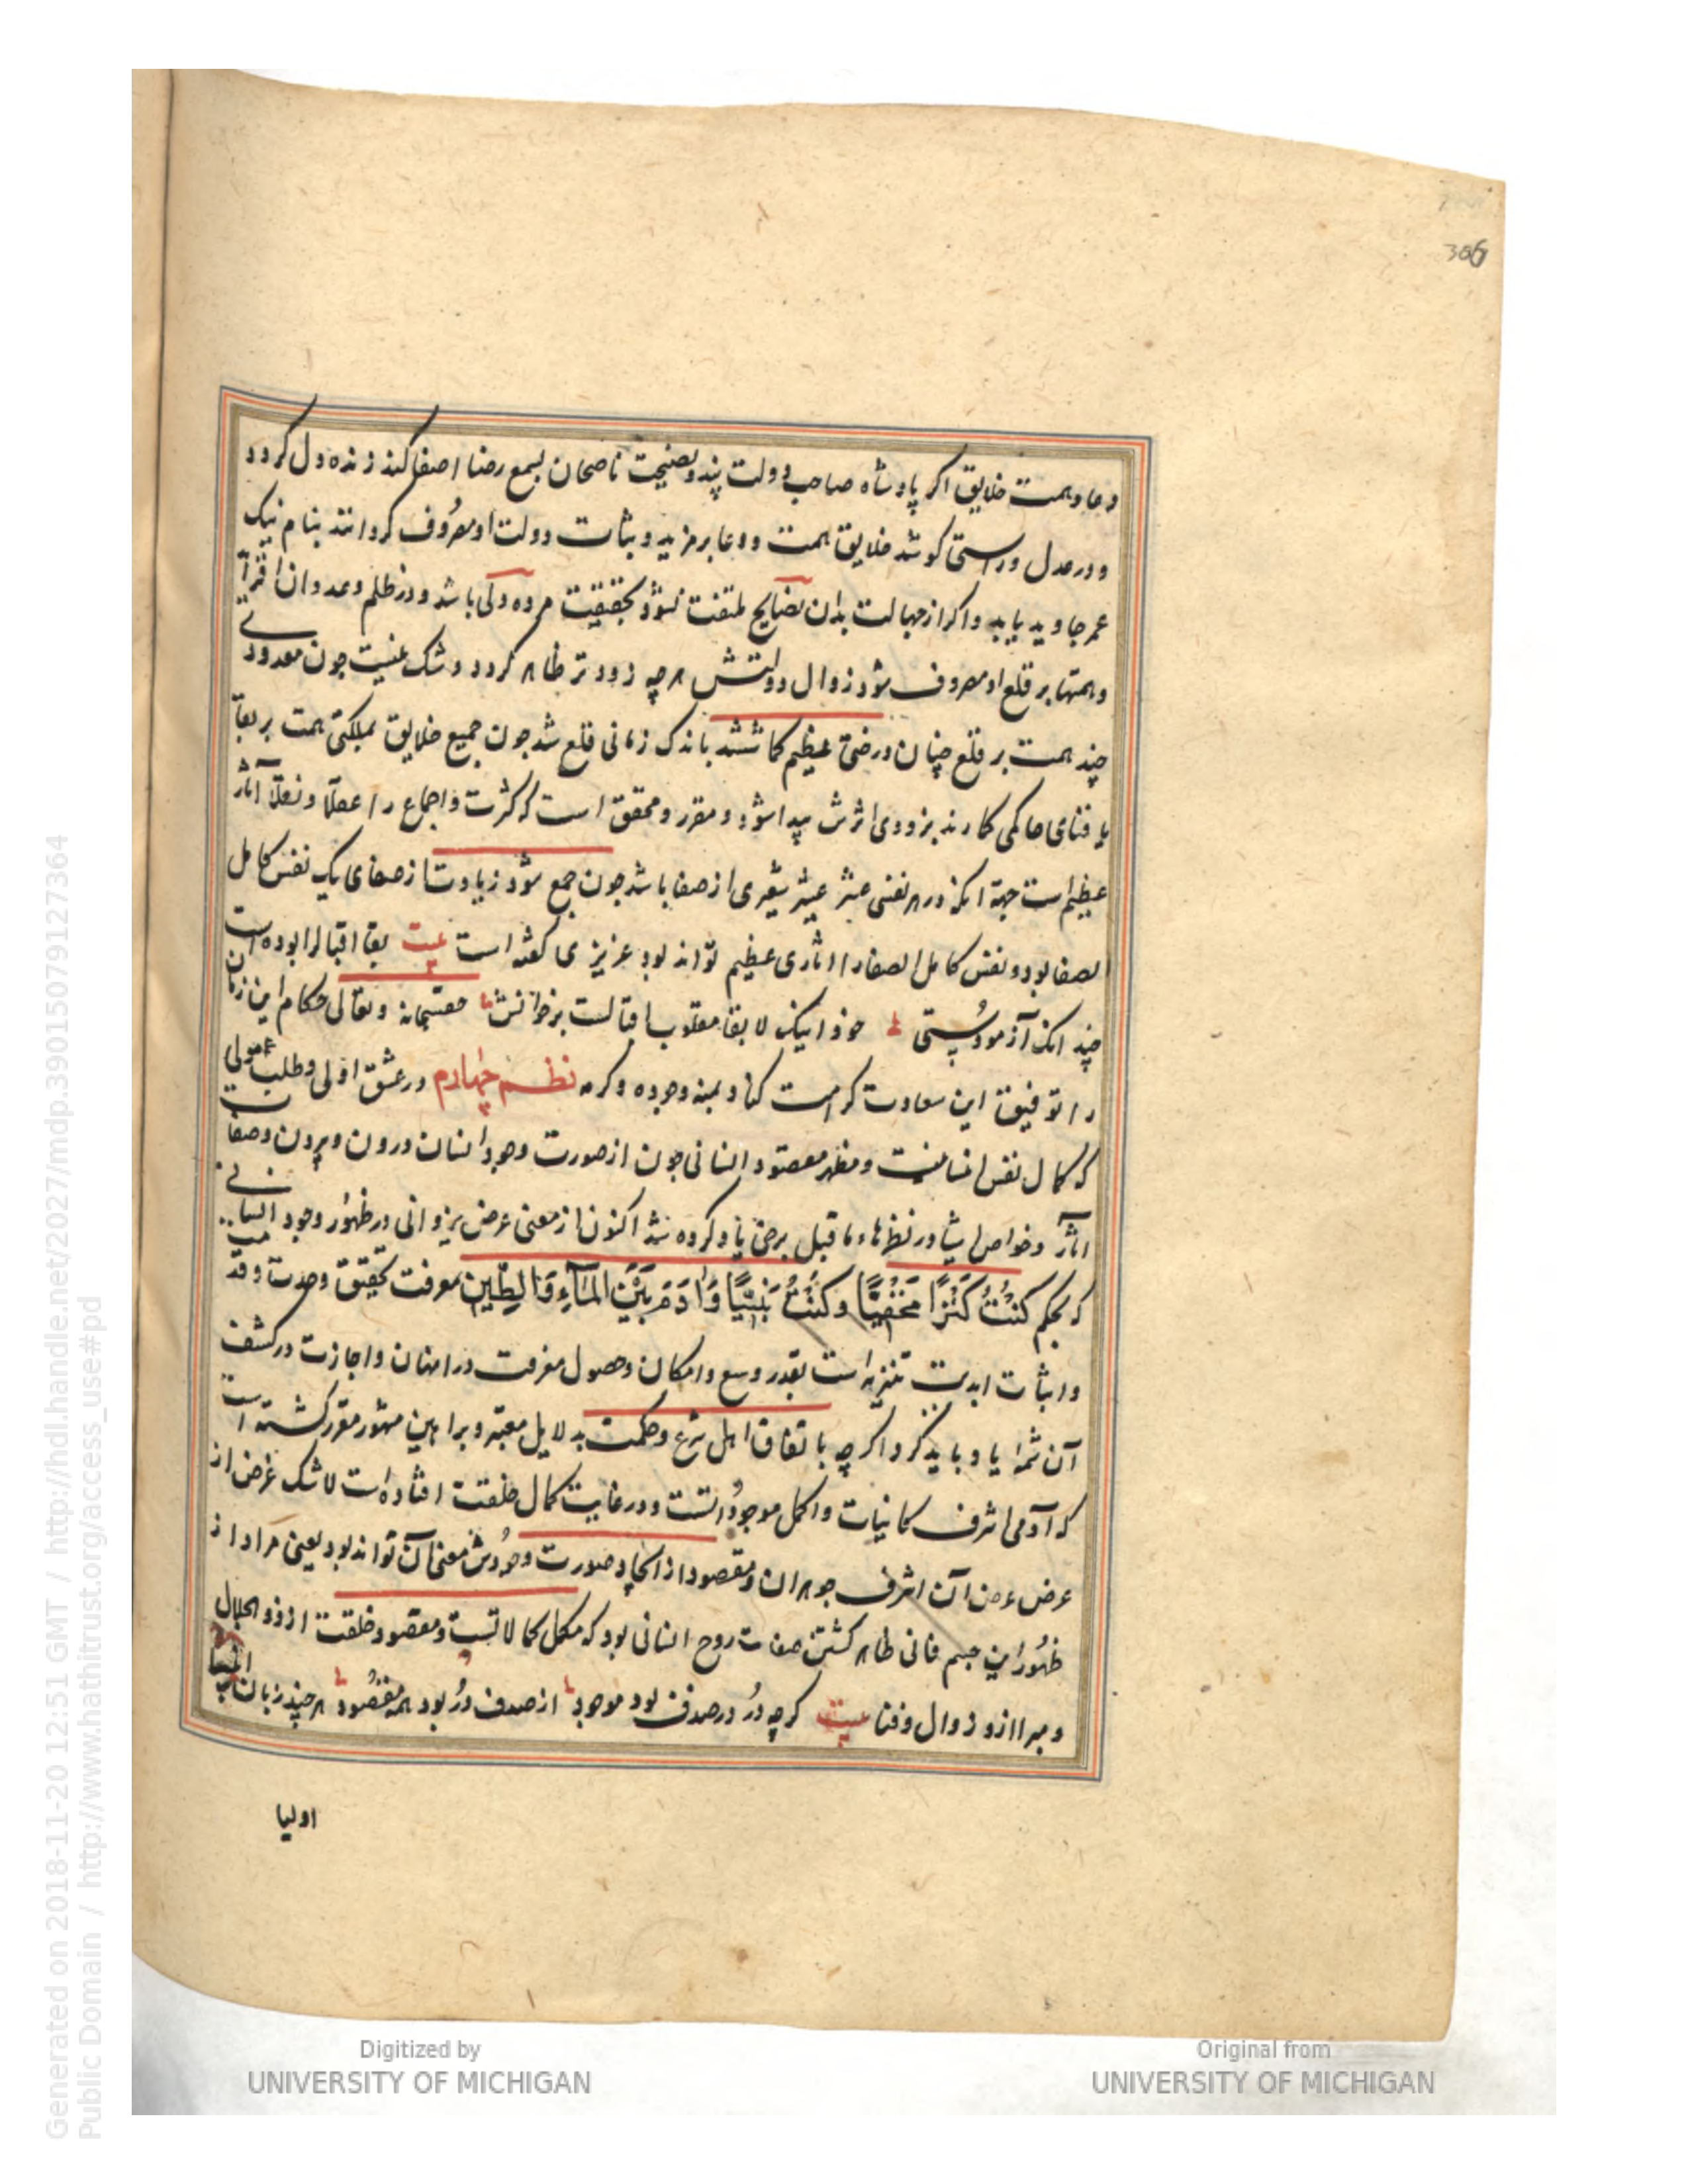 306
دعا وهمت خلایق اکر پادشاه صاحب دولت پند ونصیحت ناصحان بسمع رضا اصغا کند زنده دل کردد
ودر عدل وراستی کوشد خلایق همت ودعا بر مزید وثبات دولت او مصروف کردانند بنام نیک
عمر جاوید یابد واکر از جهالت بدان نصایح ملتفت نشود بحقیقت مرده دلی باشد ودر ظلم وعدوان
وهمتها بر قلع او مصروف شود زوال دولتش هر چه زودتر ظاهر کردد وشک نیست چون معدودی
چند همت بر قلع چنان درختی عظیم کماشتند باندک زمانی قلع شد چون جمیع خلایق مملکتی همت بر بقا
یا فنای حاکمی کمارند بزودی اثرش پیدا شود ومقرر ومحقق است که کثرت واجماع را عقلا ونقلا آثار
عظیم است جهة آنکه در هر نفسی عشر عشیری از صفا باشد چون جمع شود زیادت از صفای یک نفس کامل
الصفا بود ونفس کامل الصفا را آثاری عظیم تواند بود عزیزی کفته است بیت بقا اقبالرا بوده است
چند انک آزمودستی خود اینک لا بقا مقلوب اقبالست برخوانش حقسبحانه وتعالی حکام این زمان
را توفیق این سعادت کرامت کناد بمنه وجوده وکرمه نظم چهارم در عشق اولی وطلب مولی
که کمال نفس انسانیست ومظهر مقصود انسانی چون از صورت وجود انسان درون وبرون وصفات
آثار وخواص ایشان در نظمهاء ما قبل برخی یاد کرده شد اکنون از معنی غرض یزدانی در ظهور وجود انسانی
که بحکم کُنْتُ کَنْزًا مَخْفِیًّا وکُنْتُ نَبِیًّا وَآدَمَ بَیْنَ المَآءِ وَالطِّینِ معرفت تحقیق وحدت
واثبات ابدیت تنزیه است بقدر وسع وامکان وحصول معرفت در امتان واجازت در کشف
آن شمهٔ یاد باید کرد اکر چه باتفاق اهل شرع وحکمت بدلایل معتبر وبراهین مشهور مقرر کشته است
که آدمی اشرف کائنات واکمل موجوداتست ودر غایت کمال خلقت افتاده است لاشک غرض از
عرض آن اشرف جوهران ومقصود از ایجاد صورت وجودش معنی آن تواند بود یعنی مراد از
ظهور این جسم فانی ظاهر کشتن صفات روح انسانی بود که مکمل کمالاتست ومقصود خلقت از ذو الجلال
ومبرا از زوال وفنا بیت کرچه در در صدف بود موجود از صدف در بود همه مقصود هر چند زبان انبیا
اولیا
Generated on 2018-11-20 12:51 GMT / http://hdl.handle.net/2027/mdp.39015079127364
Public Domain / http://www.hathitrust.org/access_use#pd
Digitized by
UNIVERSITY OF MICHIGAN
Original from
UNIVERSITY OF MICHIGAN